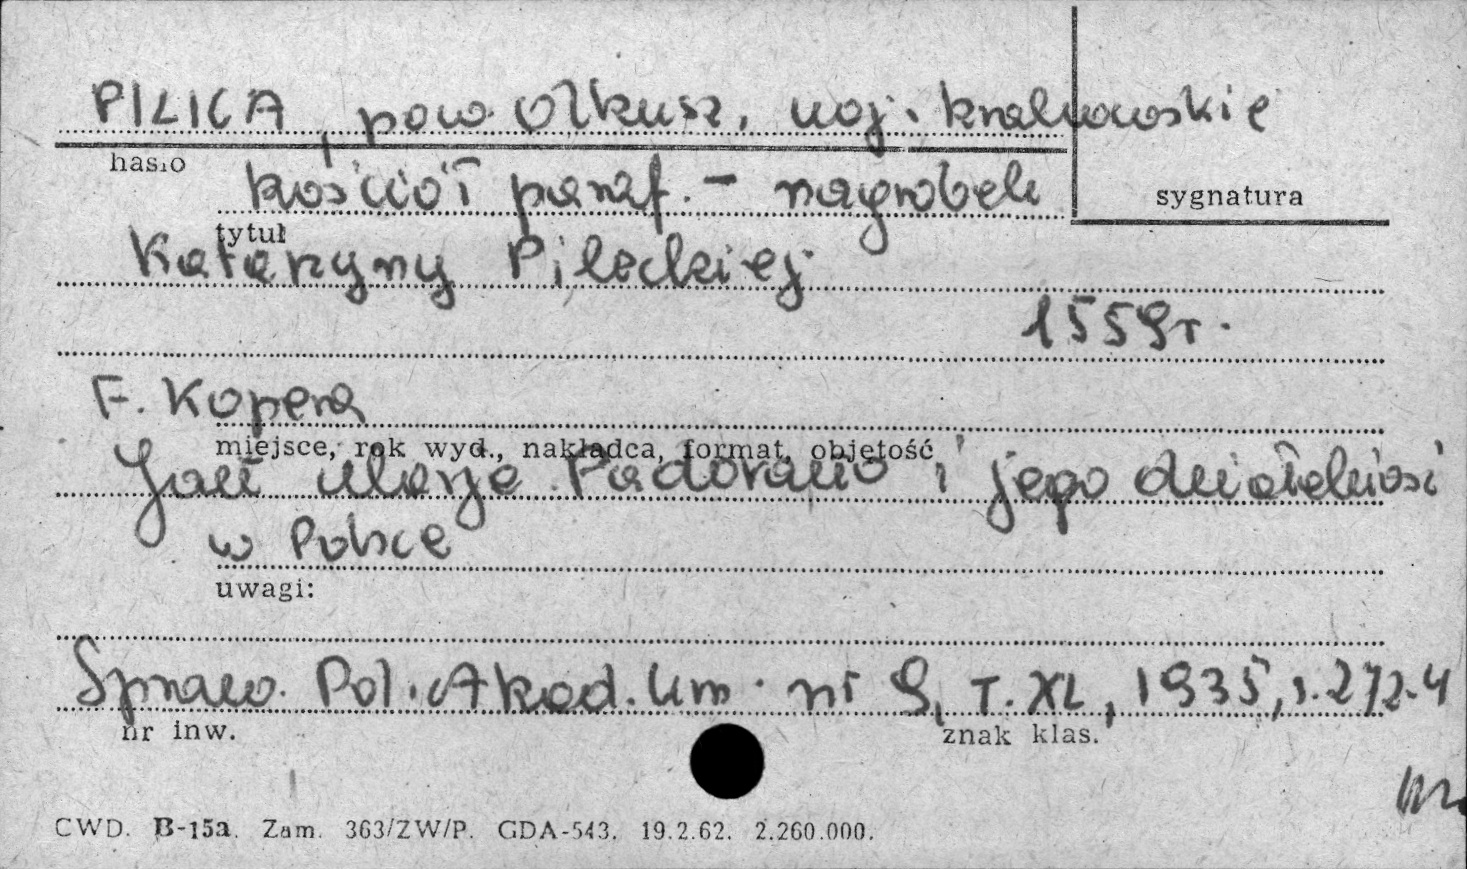 PILICA, pow. Olkusz, woj. krakowskie
hasło
kościół paraf. - nagrobek
sygnatura
tytuł
Katarzyny Pileckiej
1559 r.
F. Kopera
miejsce, rok wyd., nakładca, format, objętość
Jan Maryja Padovano i jego działalność
w Polsce
uwagi:
Spraw. Pol. Akad. Um. nr 9, T. XL, 1935, s. 272-4
nr inw.
znak klas.
CWD. B-15a. Zam. 363/ZW/P. GDA-543. 19.2.62. 2.260.000.